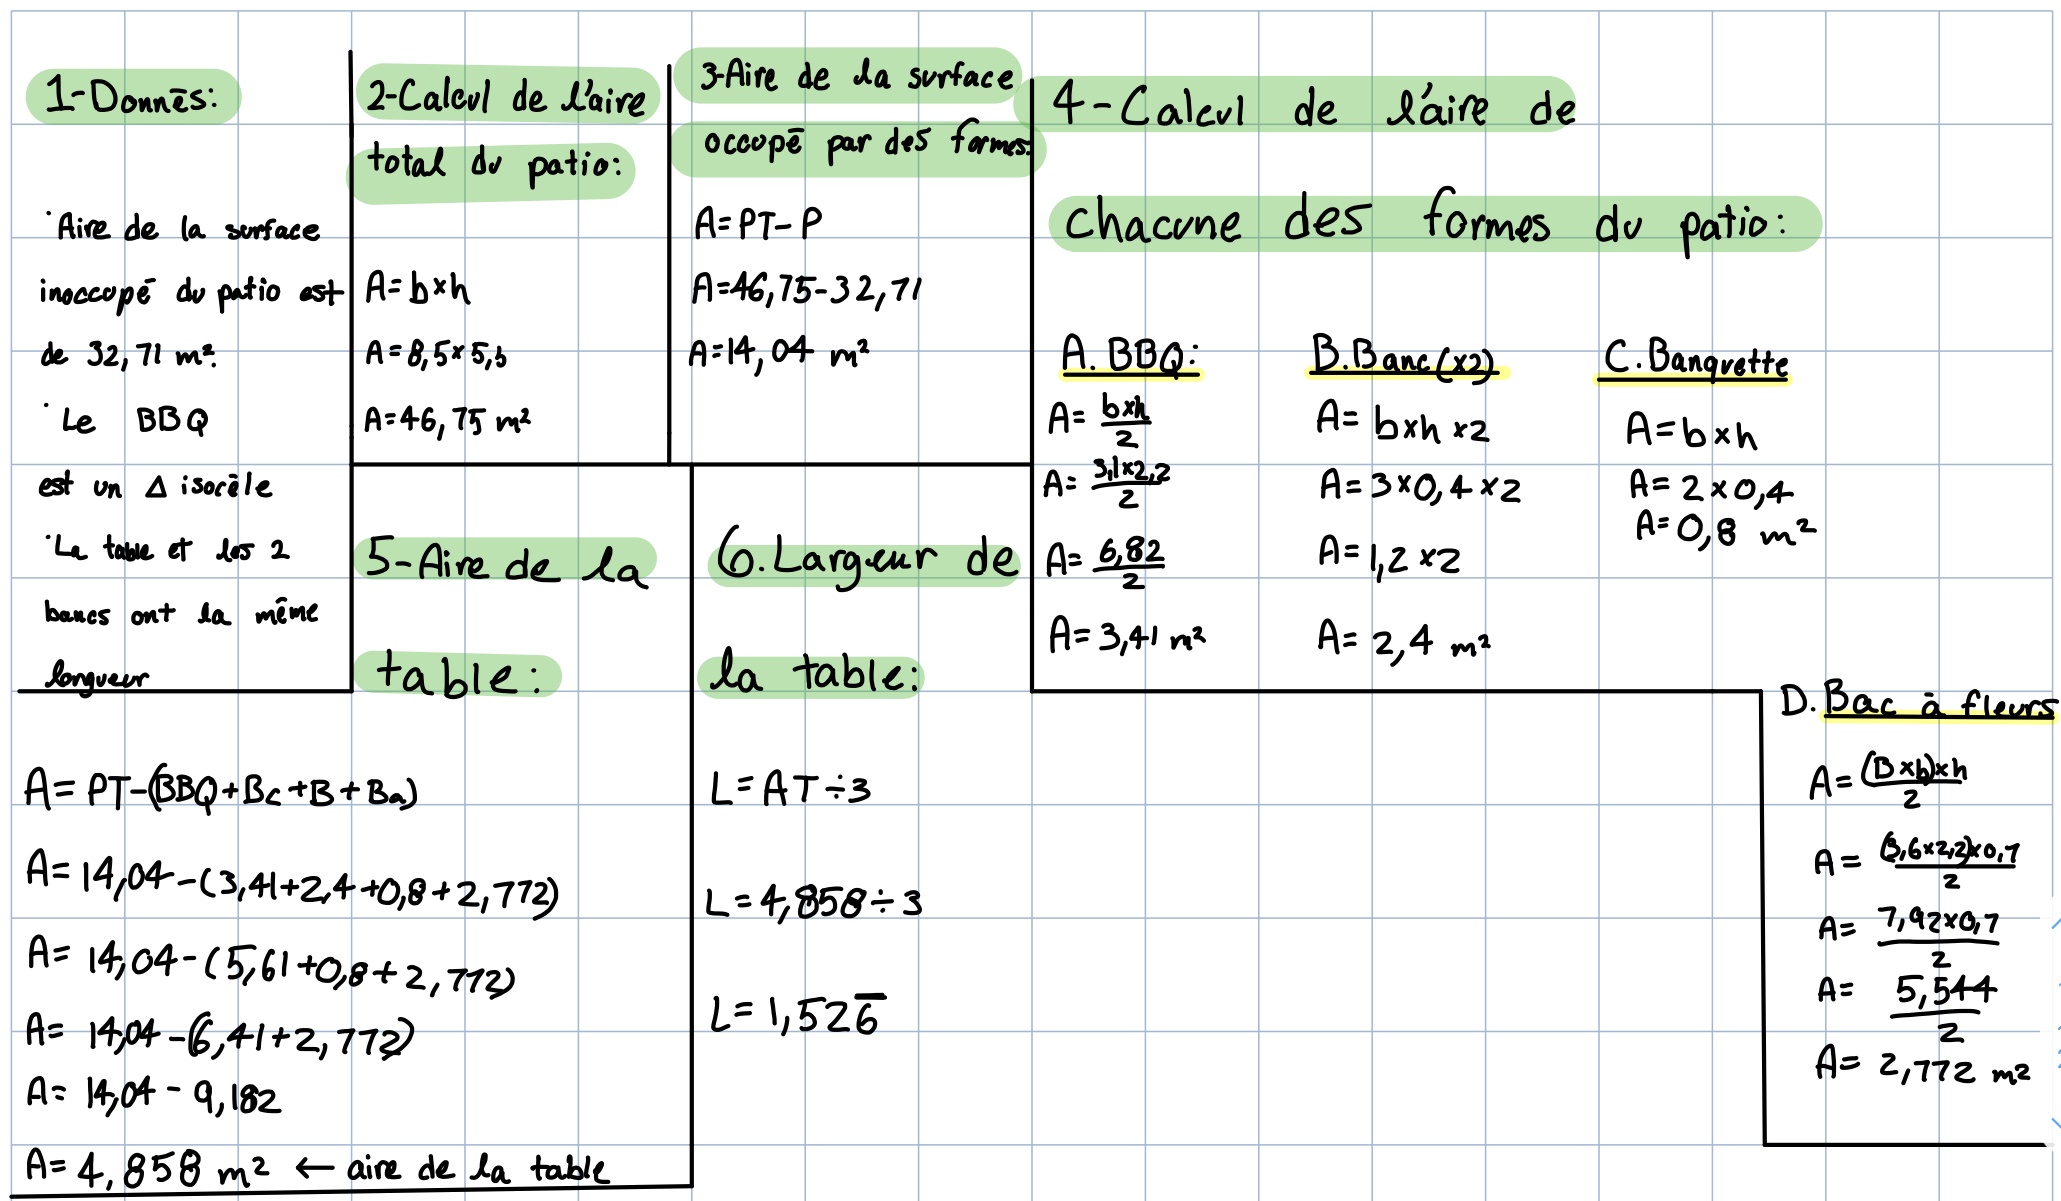 1-Donnēs:
·Aire de la surface
inoccupé du patio est
de 32,71 m².
·Le BBQ
est un Δ isocēle
·La table et les 2
bancs ont la même
longueur
2-Calcul de l'aire
total du patio:
A=b×h
A=8,5×5,5
A=46,75 m²
3-Aire de la surface
occupē par des formes:
A=PT-P
A=46,75-32,71
A=14,04 m²
4-Calcul de l'aire de
Chacune des formes du patio:
A. BBQ:
A= b×h/2
A= 3,1×2,2/2
A= 6,82/2
A= 3,41 m²
B.Banc(×2)
A= b×h ×2
A= 3×0,4×2
A= 1,2×2
A= 2,4 m²
C.Banquette
A=b×h
A= 2×0,4
A= 0,8 m²
D.Bac à fleurs
A= (B×b)×h/2
A= (3,6×2,2)×0,7/2
A= 7,92×0,7/2
A= 5,544/2
A= 2,772 m²
5-Aire de la
table:
A= PT-(BBQ+Bc+B+Ba)
A= 14,04-(3,41+2,4+0,8+2,772)
A= 14,04-(5,61+0,8+2,772)
A= 14,04-(6,41+2,772)
A= 14,04-9,182
A= 4,858 m² ← aire de la table
6.Largeur de
la table:
L=AT÷3
L=4,858÷3
L=1,526̅